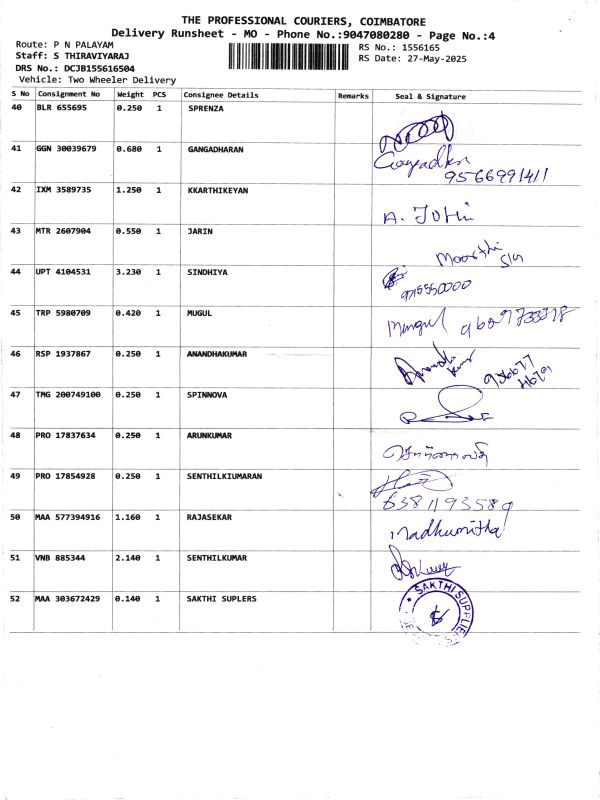 THE PROFESSIONAL COURIERS, COIMBATORE
Delivery Runsheet - MO - Phone No.:9047080280 - Page No.:4
Route: P N PALAYAM
RS No.: 1556165
Staff: S THIRAVIYARAJ
RS Date: 27-May-2025
DRS No.: DCJB155616504
Vehicle: Two Wheeler Delivery
S No Consignment No Weight PCS Consignee Details Remarks Seal & Signature
40 BLR 655695 0.250 1 SPRENZA
41 GGN 30039679 0.680 1 GANGADHARAN
9566991411
42 IXM 3589735 1.250 1 KKARTHIKEYAN
A. John
43 MTR 2607904 0.550 1 JARIN
Moorthi
44 UPT 4104531 3.230 1 SINDHIYA
9715550000
45 TRP 5980709 0.420 1 MUGUL
46 RSP 1937867 0.250 1 ANANDHAKUMAR
47 TMG 200749100 0.250 1 SPINNOVA
48 PRO 17837634 0.250 1 ARUNKUMAR
49 PRO 17854928 0.250 1 SENTHILKIUMARAN
6381193589
50 MAA 577394916 1.160 1 RAJASEKAR
Madhumitha
51 VNB 885344 2.140 1 SENTHILKUMAR
52 MAA 303672429 0.140 1 SAKTHI SUPLERS
SAKTHI SUPPLIERS